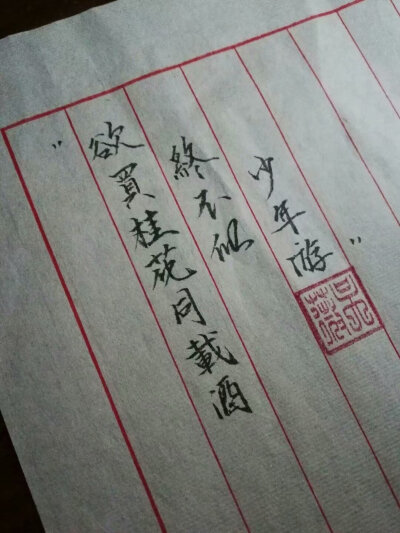 "欲買桂花同載酒
終不似
少年游"